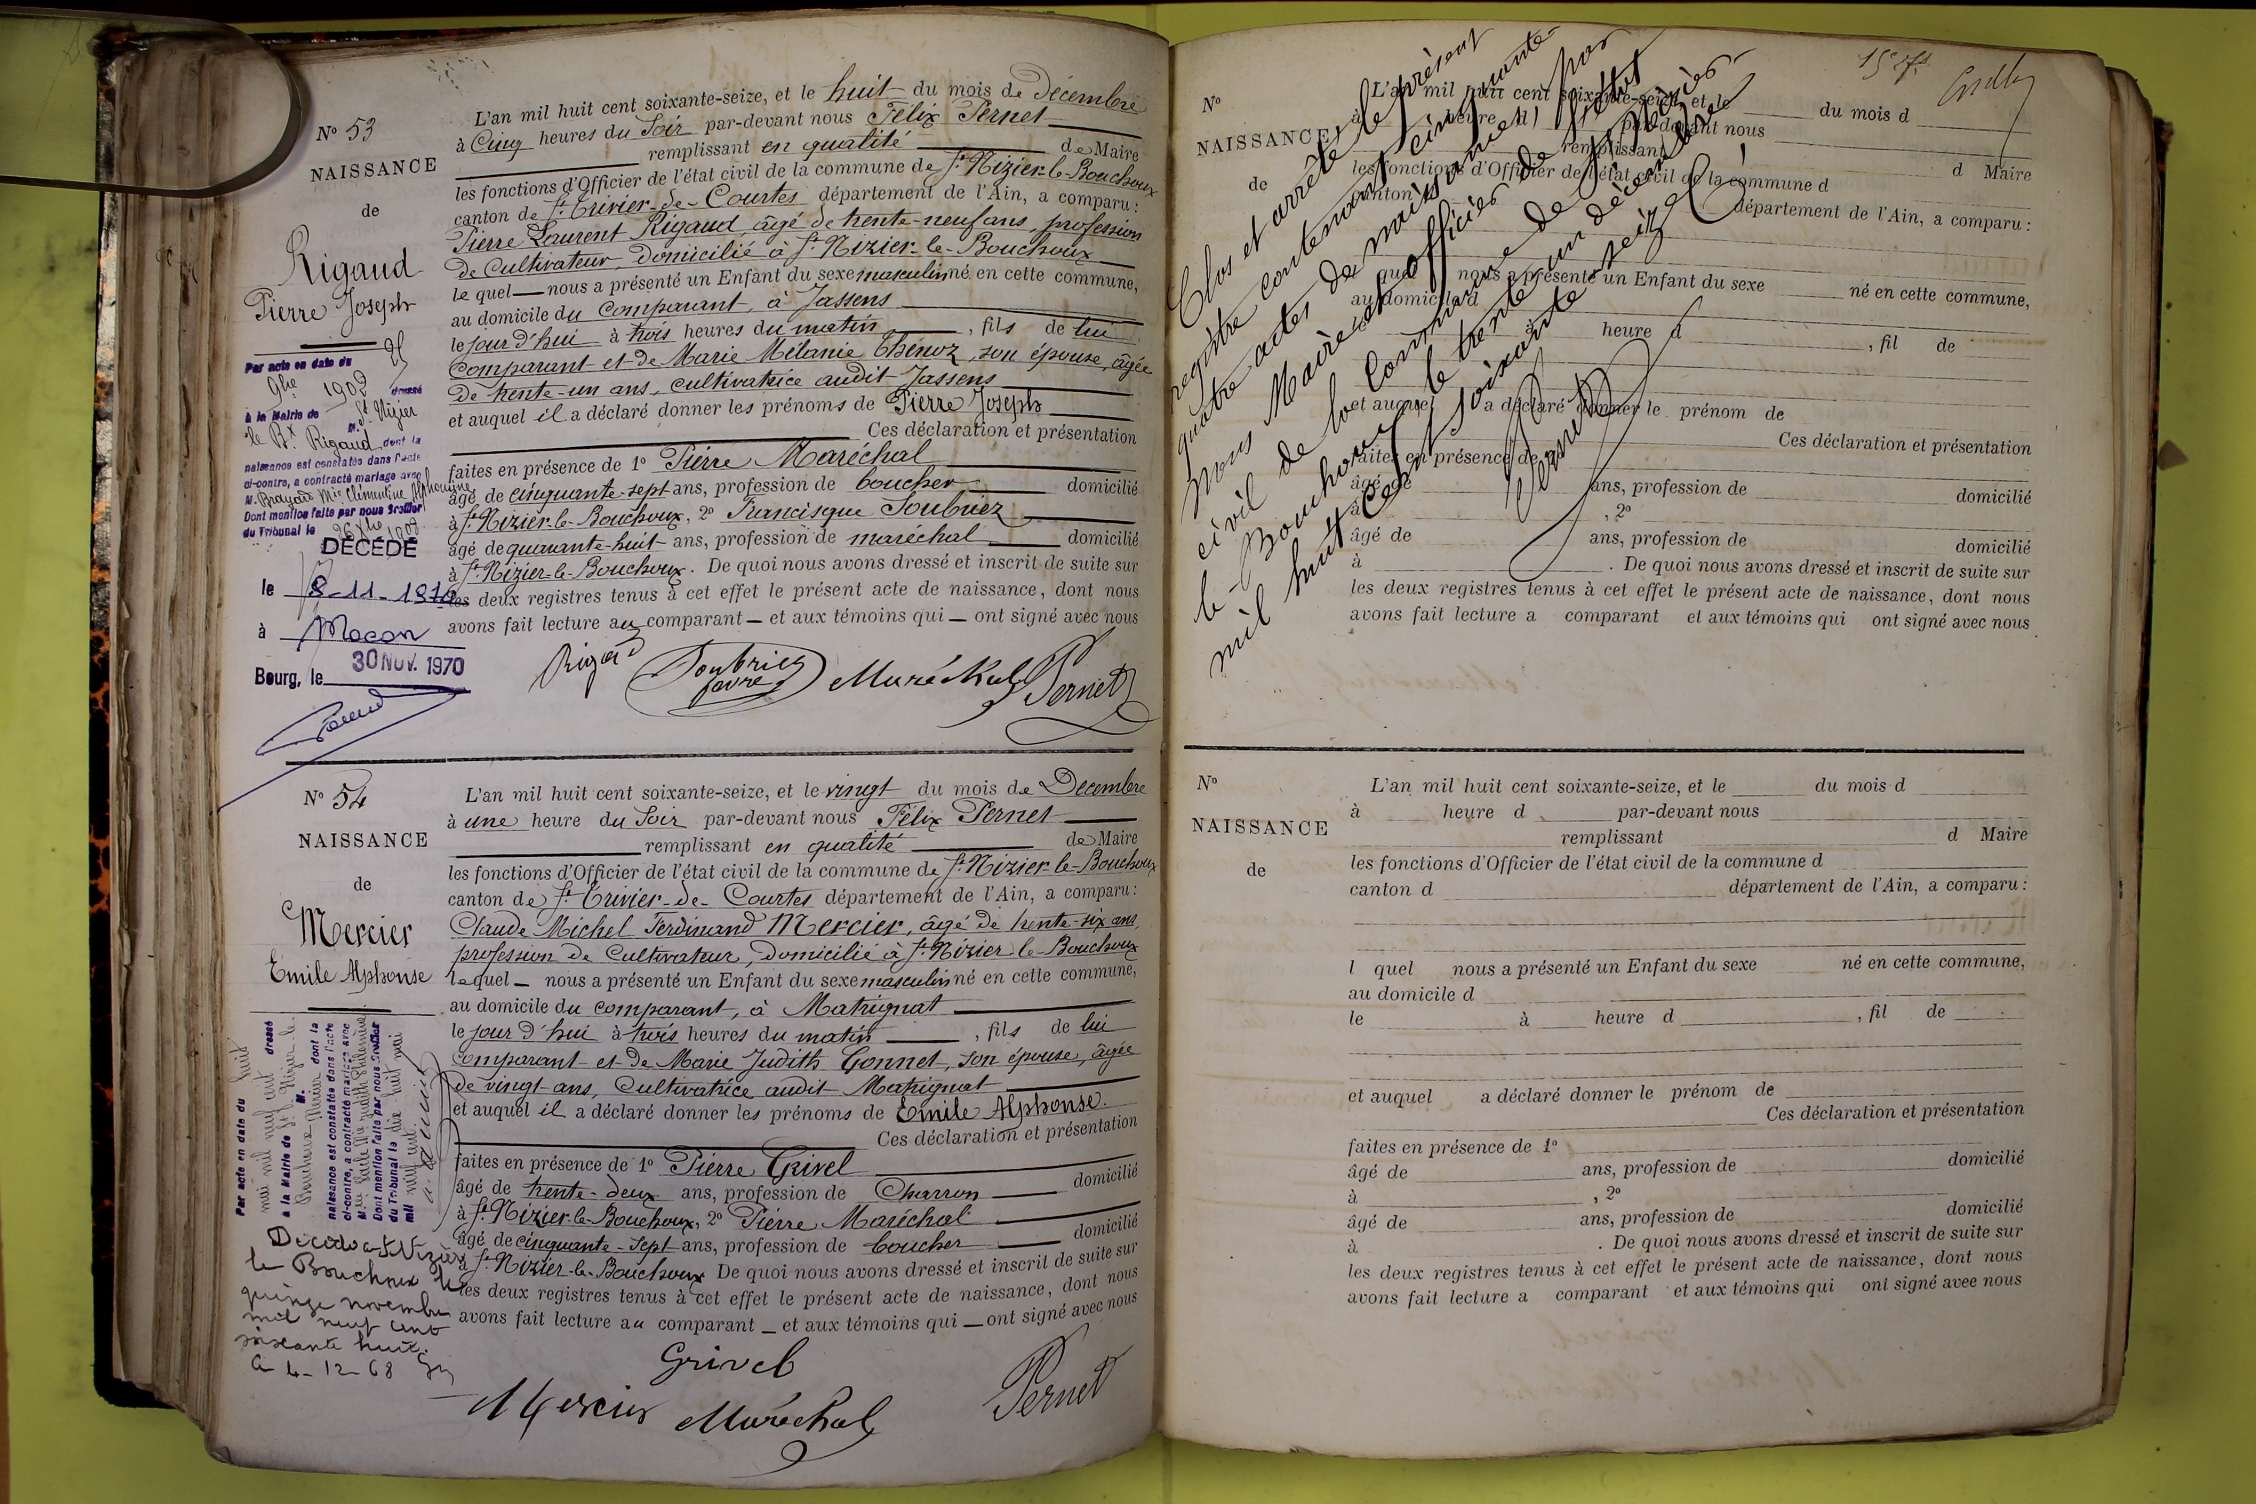 N° 53
NAISSANCE
de
Rigaud
Pierre Joseph
Par acte en date du 25
9bre 1903 dressé
à la Mairie de St Nizier
le Bx M. Rigaud dont la
naissance est constatée dans l'acte
ci-contre, a contracté mariage avec
M. Brayard Mie Clémentine Alphonsine
Dont mention faite par nous Greffier
du Tribunal le 26 Xbre 1903
DÉCÉDÉ
le 8-11-1970
à Mâcon
Bourg, le 30 NOV. 1970
L'an mil huit cent soixante-seize, et le huit du mois de Décembre
à Cinq heures du Soir par-devant nous Félix Pernet
remplissant en qualité de Maire
les fonctions d'Officier de l'état civil de la commune de St Nizier-le-Bouchoux
canton de St Trivier-de-Courtes département de l'Ain, a comparu:
Pierre Laurent Rigaud, âgé de trente-neuf ans, profession
de Cultivateur, domicilié à St Nizier-le-Bouchoux
lequel nous a présenté un Enfant du sexe masculin né en cette commune,
au domicile du comparant, à Jassens
le jour d'hui à trois heures du matin, fils de lui
comparant et de Marie Mélanie Thénoz, son épouse, âgée
de trente-un ans, cultivatrice audit Jassens
et auquel il a déclaré donner les prénoms de Pierre Joseph
Ces déclaration et présentation
faites en présence de 1° Pierre Maréchal
âgé de cinquante-sept ans, profession de boucher domicilié
à St Nizier-le-Bouchoux, 2° Francisque Soubriez
âgé de quarante-huit ans, profession de maréchal domicilié
à St Nizier-le-Bouchoux. De quoi nous avons dressé et inscrit de suite sur
les deux registres tenus à cet effet le présent acte de naissance, dont nous
avons fait lecture au comparant et aux témoins qui ont signé avec nous
Rigaud Maréchal Pernet
N° 54
NAISSANCE
de
Mercier
Emile Alphonse
Par acte en date du huit
mai mil neuf cent dressé
à la Mairie de St Nizier le
Bouchoux M. Mercier dont la
naissance est constatée dans l'acte
ci-contre, a contracté mariage avec
Dont mention faite par nous Greffier
du Tribunal le dix huit mai
mil neuf cent.
Décédé à St Nizier
le Bouchoux le
quinze novembre
mil neuf cent
soixante huit.
a 4-12-68
L'an mil huit cent soixante-seize, et le vingt du mois de Decembre
à une heure du Soir par-devant nous Félix Pernet
remplissant en qualité de Maire
les fonctions d'Officier de l'état civil de la commune de St Nizier-le-Bouchoux
canton de St Trivier-de-Courtes département de l'Ain, a comparu:
Claude Michel Ferdinand Mercier, âgé de trente-six ans,
profession de Cultivateur, domicilié à St Nizier-le-Bouchoux
lequel nous a présenté un Enfant du sexe masculin né en cette commune,
au domicile du comparant, à Matrignat
le jour d'hui à trois heures du matin, fils de lui
comparant et de Marie Judith Gonnet, son épouse, âgée
de vingt ans, Cultivatrice audit Matrignat
et auquel il a déclaré donner les prénoms de Emile Alphonse.
Ces déclaration et présentation
faites en présence de 1° Pierre Grivel
âgé de trente-deux ans, profession de Charron domicilié
à St Nizier-le-Bouchoux, 2° Pierre Maréchal
âgé de cinquante-sept ans, profession de boucher domicilié
à St Nizier-le-Bouchoux De quoi nous avons dressé et inscrit de suite sur
les deux registres tenus à cet effet le présent acte de naissance, dont nous
avons fait lecture au comparant et aux témoins qui ont signé avec nous
Grivel
Mercier Maréchal Pernet
Clos et arrêté le présent
registre contenant cinquante-
quatre actes de naissances, par
nous Maire et officier de l'état
civil de la Commune de St Nizier-
le-Bouchoux le trente un décembre
mil huit cent soixante seize
Pernet
N°
NAISSANCE
de
L'an mil huit cent soixante-seize, et le du mois d
à heure d par-devant nous
remplissant d Maire
les fonctions d'Officier de l'état civil de la commune d
canton d département de l'Ain, a comparu:
l quel nous a présenté un Enfant du sexe né en cette commune,
au domicile d
le à heure d , fil de
et auquel a déclaré donner le prénom de
Ces déclaration et présentation
faites en présence de 1°
âgé de ans, profession de domicilié
à , 2°
âgé de ans, profession de domicilié
à . De quoi nous avons dressé et inscrit de suite sur
les deux registres tenus à cet effet le présent acte de naissance, dont nous
avons fait lecture a comparant et aux témoins qui ont signé avec nous
N°
NAISSANCE
de
L'an mil huit cent soixante-seize, et le du mois d
à heure d par-devant nous
remplissant d Maire
les fonctions d'Officier de l'état civil de la commune d
canton d département de l'Ain, a comparu:
l quel nous a présenté un Enfant du sexe né en cette commune,
au domicile d
le à heure d , fil de
et auquel a déclaré donner le prénom de
Ces déclaration et présentation
faites en présence de 1°
âgé de ans, profession de domicilié
à , 2°
âgé de ans, profession de domicilié
à . De quoi nous avons dressé et inscrit de suite sur
les deux registres tenus à cet effet le présent acte de naissance, dont nous
avons fait lecture a comparant et aux témoins qui ont signé avec nous